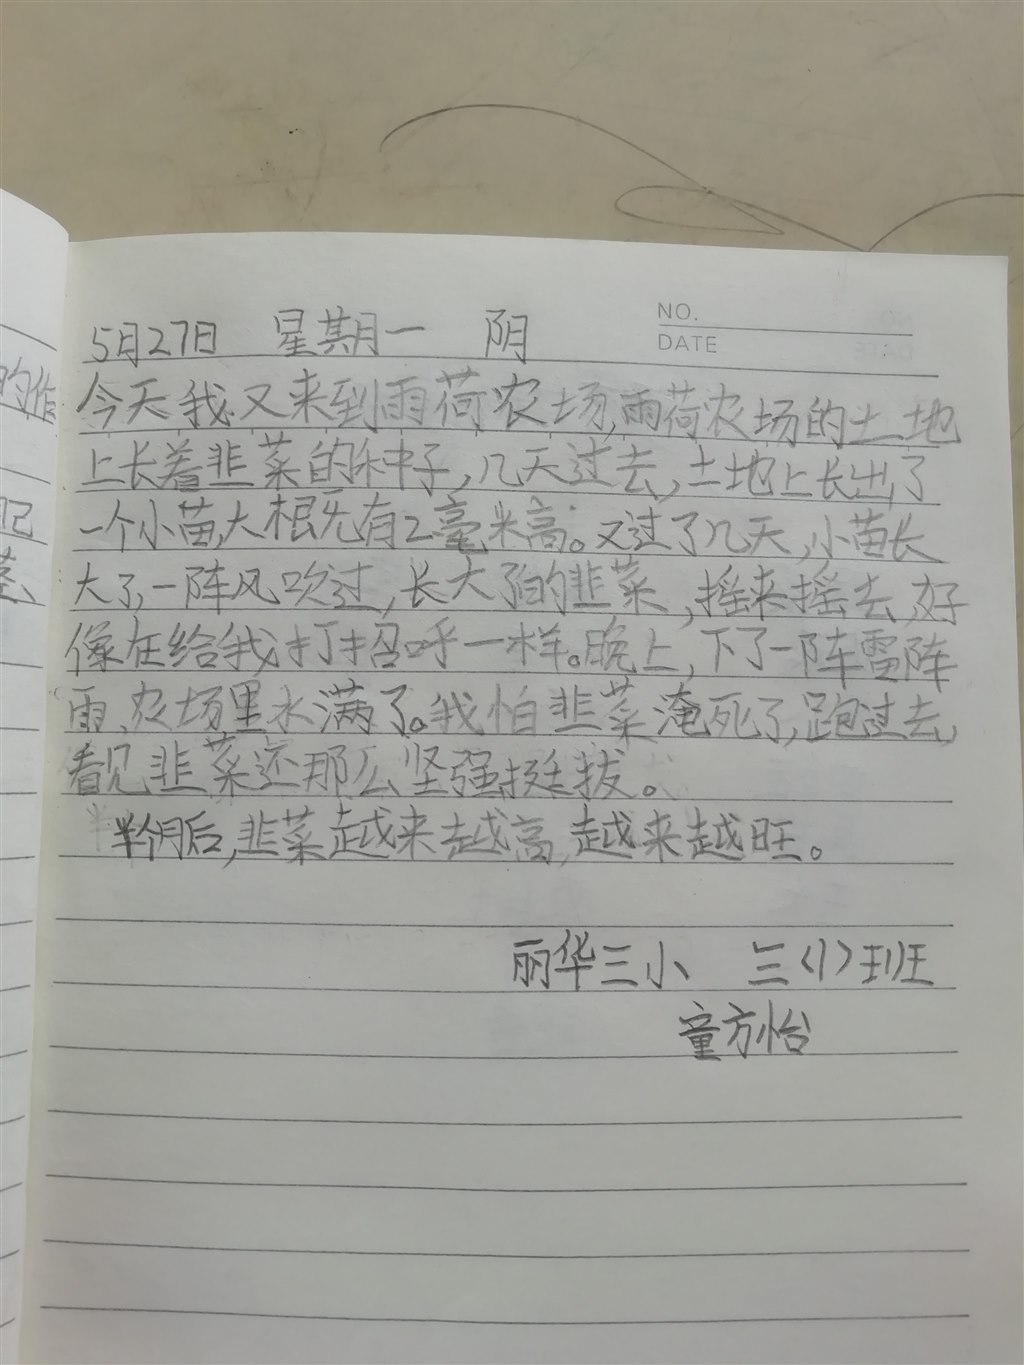 NO.
DATE
5月27日 星期一 阴
今天我又来到雨荷农场,雨荷农场的土地
上长着韭菜的种子,几天过去,土地上长出了
一个小苗,大根无有2毫米高。又过了几天,小苗长
大了,一阵风吹过,长大了的韭菜,摇来摇去,好
像在给我打招呼一样。晚上,下了一阵雷阵
雨,农场里水满了。我怕韭菜淹死了,跑过去,
看见韭菜还那么坚强挺拔。
半个月后,韭菜越来越高,越来越旺。
丽华三小 三(1)班
童方怡